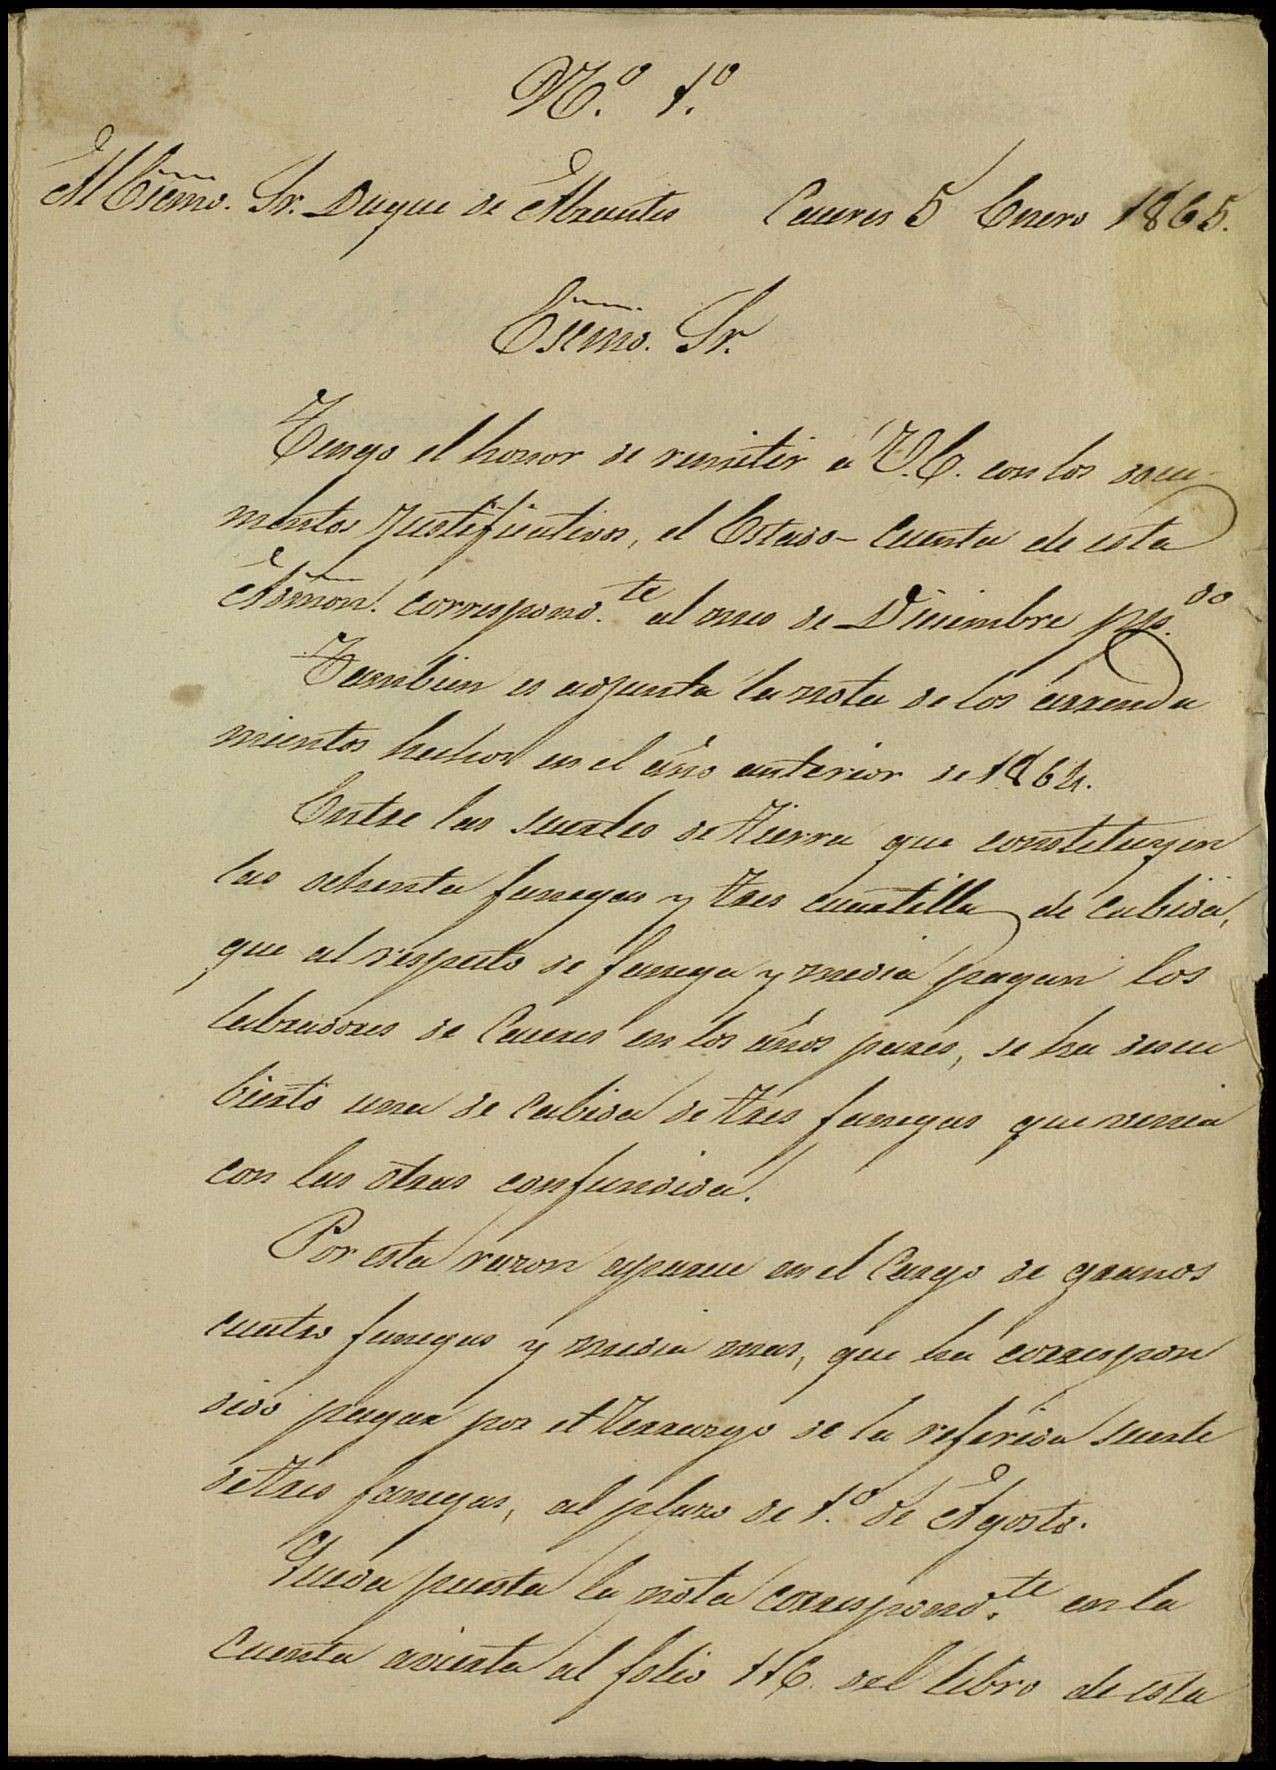 N.º 1.º
Al Escmo. Sr. Duque de Abrantes Caceres 5 Enero 1865.
Escmo. Sr.
Tengo el honor de remitir á V.E. con los docu-
mentos justificativos, el Estado-Cuenta de esta
Admon. correspond.te al mes de Diciembre pp.do
Tambien es adjunta la nota de los arrenda
mientos hechos en el año anterior de 1864.
Entre las suertes de tierra que constituyen
las ochenta fanegas y tres cuartilla de cabida,
que al respecto de fanega y media pagan los
labradores de Caceres en los años pares, se ha descu
bierto una de cabida de tres fanegas que venia
con las otras confundida.
Por esta razon aparece en el Cargo de granos
cuatro fanegas y media mas, que ha correspon
dido pagar por el terrazgo de la referida suerte
de tres fanegas, al plazo de 1.º de Agosto.
Queda puesta la nota correspond.te en la
cuenta avierta al folio 116. del libro de esta